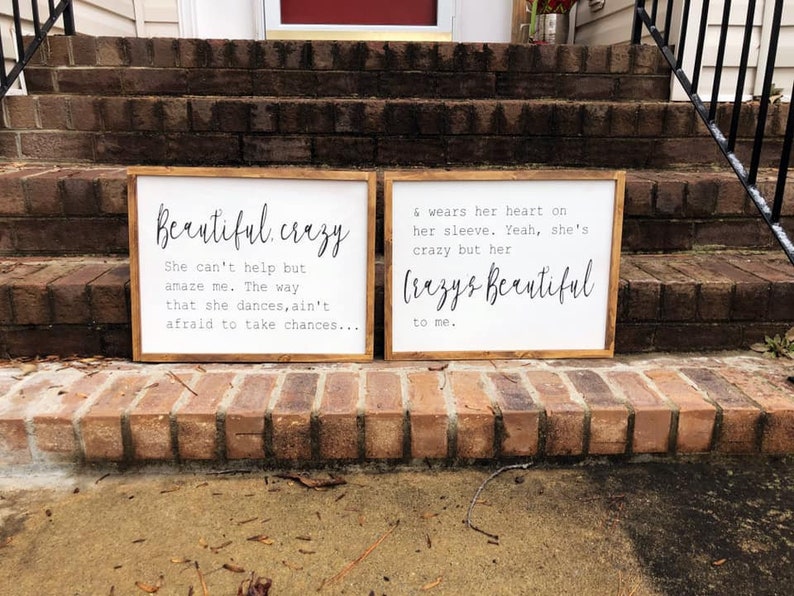 Beautiful, crazy
She can't help but
amaze me. The way
that she dances,ain't
afraid to take chances...
& wears her heart on
her sleeve. Yeah, she's
crazy but her
Crazy's Beautiful
to me.